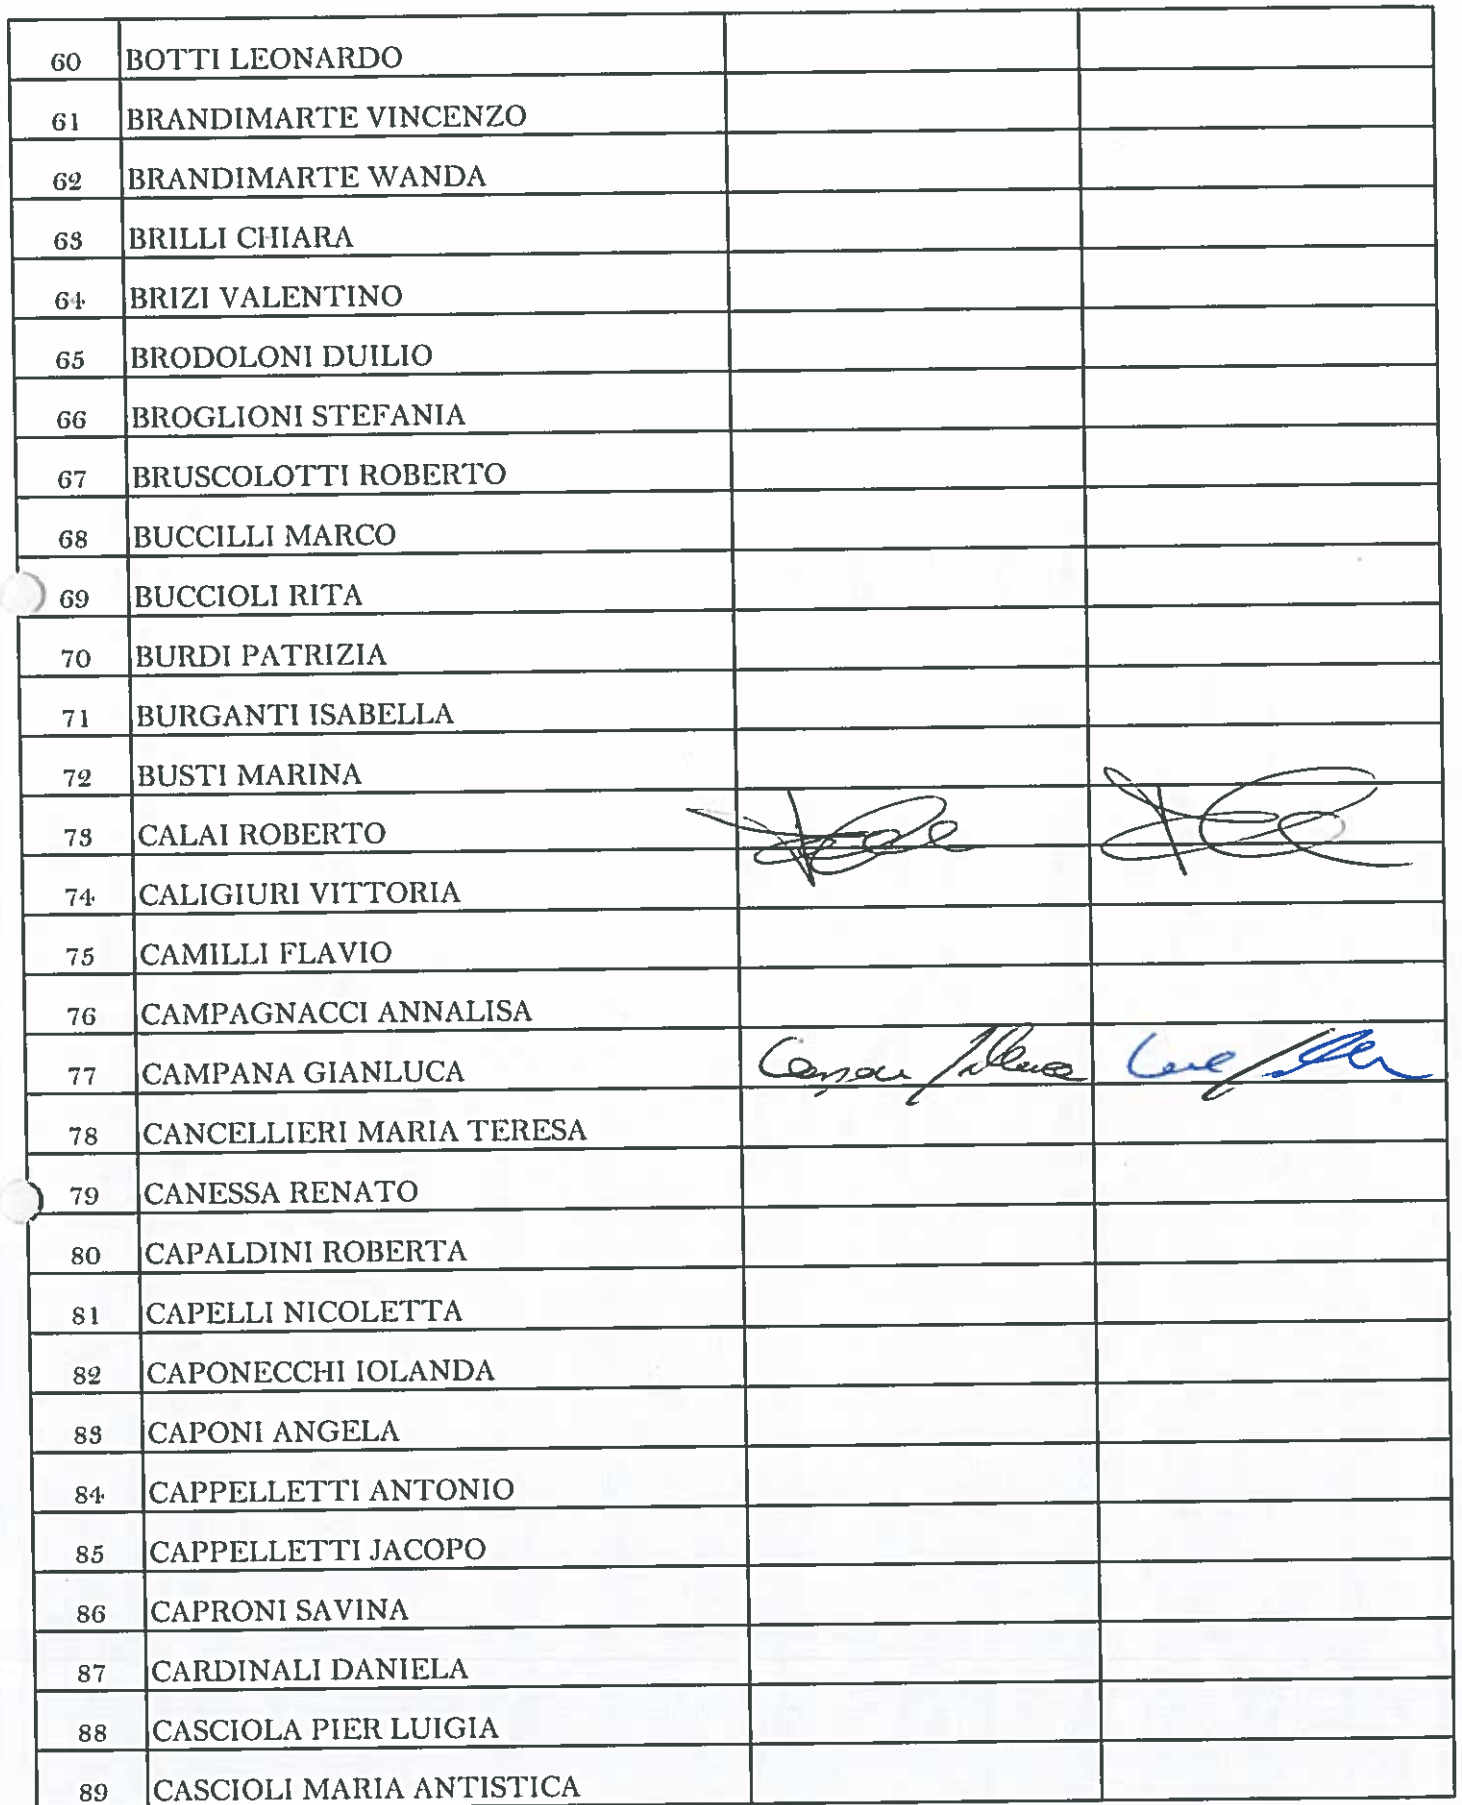 60 BOTTI LEONARDO
61 BRANDIMARTE VINCENZO
62 BRANDIMARTE WANDA
63 BRILLI CHIARA
64 BRIZI VALENTINO
65 BRODOLONI DUILIO
66 BROGLIONI STEFANIA
67 BRUSCOLOTTI ROBERTO
68 BUCCILLI MARCO
69 BUCCIOLI RITA
70 BURDI PATRIZIA
71 BURGANTI ISABELLA
72 BUSTI MARINA
73 CALAI ROBERTO
74 CALIGIURI VITTORIA
75 CAMILLI FLAVIO
76 CAMPAGNACCI ANNALISA
77 CAMPANA GIANLUCA
78 CANCELLIERI MARIA TERESA
79 CANESSA RENATO
80 CAPALDINI ROBERTA
81 CAPELLI NICOLETTA
82 CAPONECCHI IOLANDA
83 CAPONI ANGELA
84 CAPPELLETTI ANTONIO
85 CAPPELLETTI JACOPO
86 CAPRONI SAVINA
87 CARDINALI DANIELA
88 CASCIOLA PIER LUIGIA
89 CASCIOLI MARIA ANTISTICA